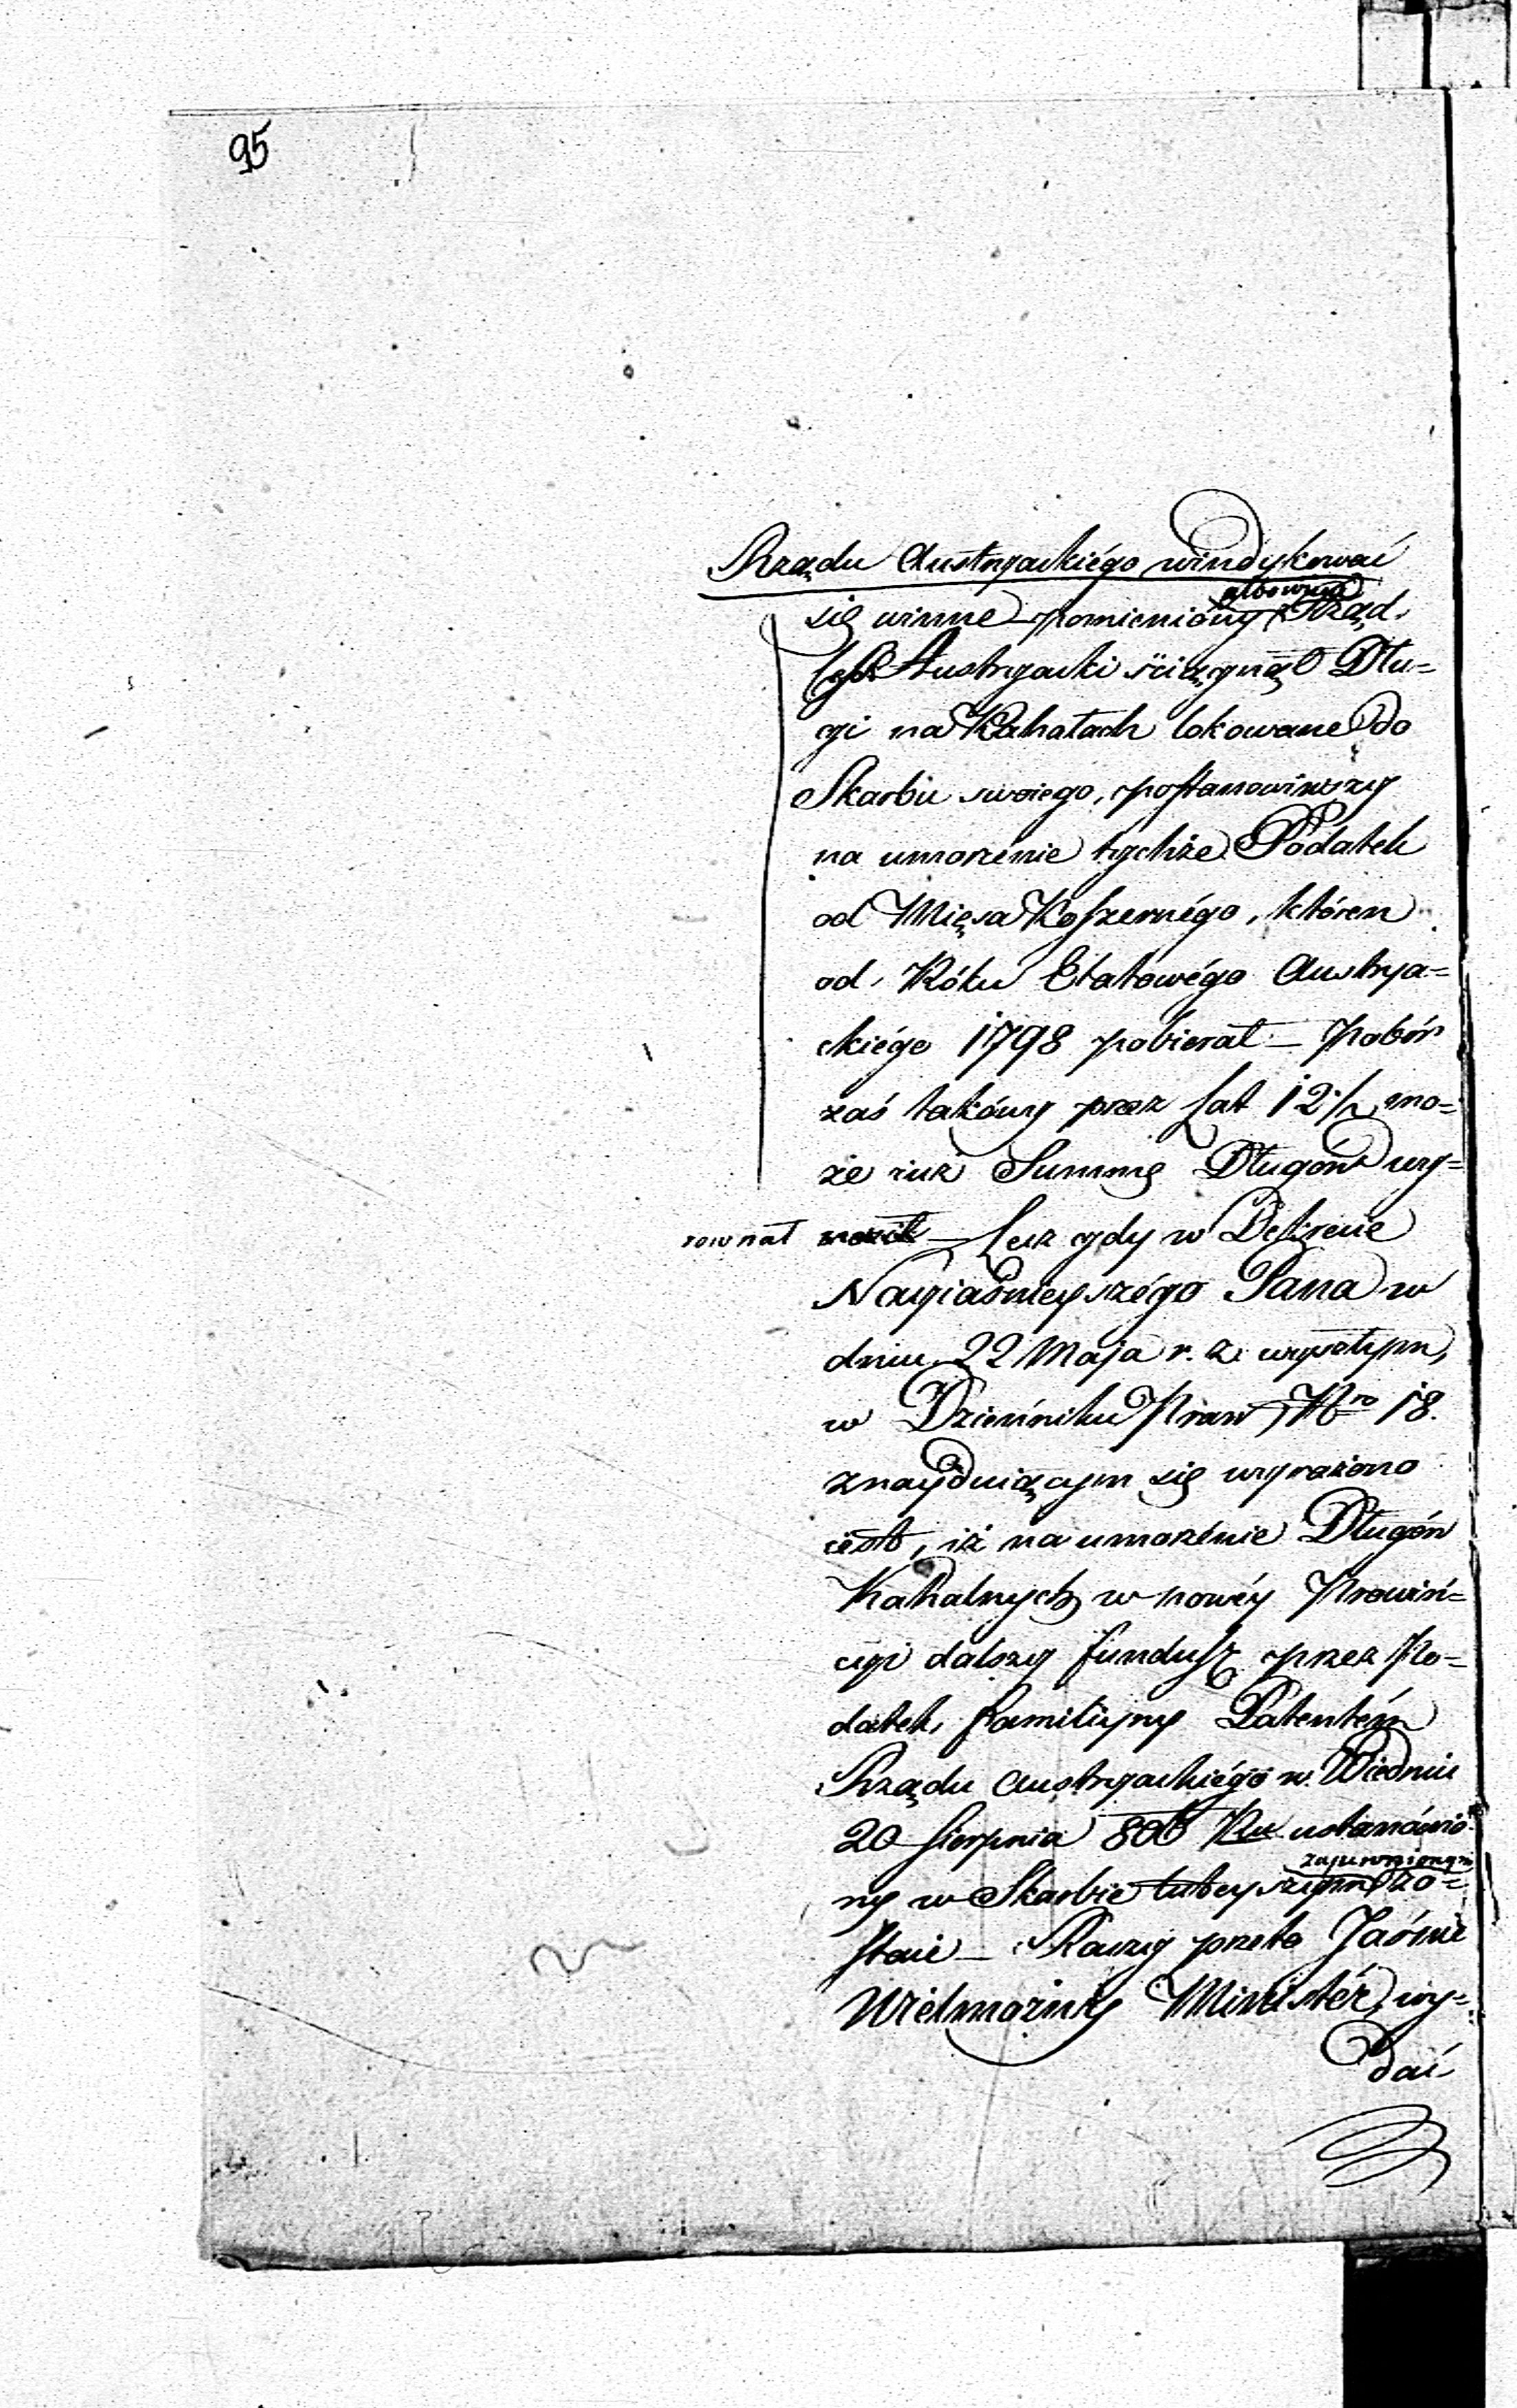 95
Rządu Austryackiégo windykować
albowiem
się winne pomieniony Rząd
Austryacki ściągnął Dłu=
gi na Kahałach lokowane do
Skarbu swoiego, postanowiwszy
na umorzenie tychże Podatek
od Mięsa Koszernégo, któren
od Róku Etatowégo Austrya=
ckiégo 1798 pobierał — Pobór
zaś takówy przez Lat 12½ mo=
że iuż Summę Długów wy=
rownał
nosić — Lecz gdy w Dekrecie
Nayiaśnieyszégo Pana w
dniu 22 Maja r. z. wyszłym,
w Dzienniku Praw Nro 18.
znayduiącym się wyrażono
iest, iż na umorzénie Długów
Kahalnych w nowéy Prowin=
cyi dalszy fundusz przez Po=
datek familiyny Patentém
Rządu Austryackiégo w Wiedniu
20 Sierpnia 806 Ru ustanówio
zapewnionym
ny w Skarbie tuteyszym zo=
staie — Raczy przeto Jaśnie
Wielmożny Ministér wy=
dać